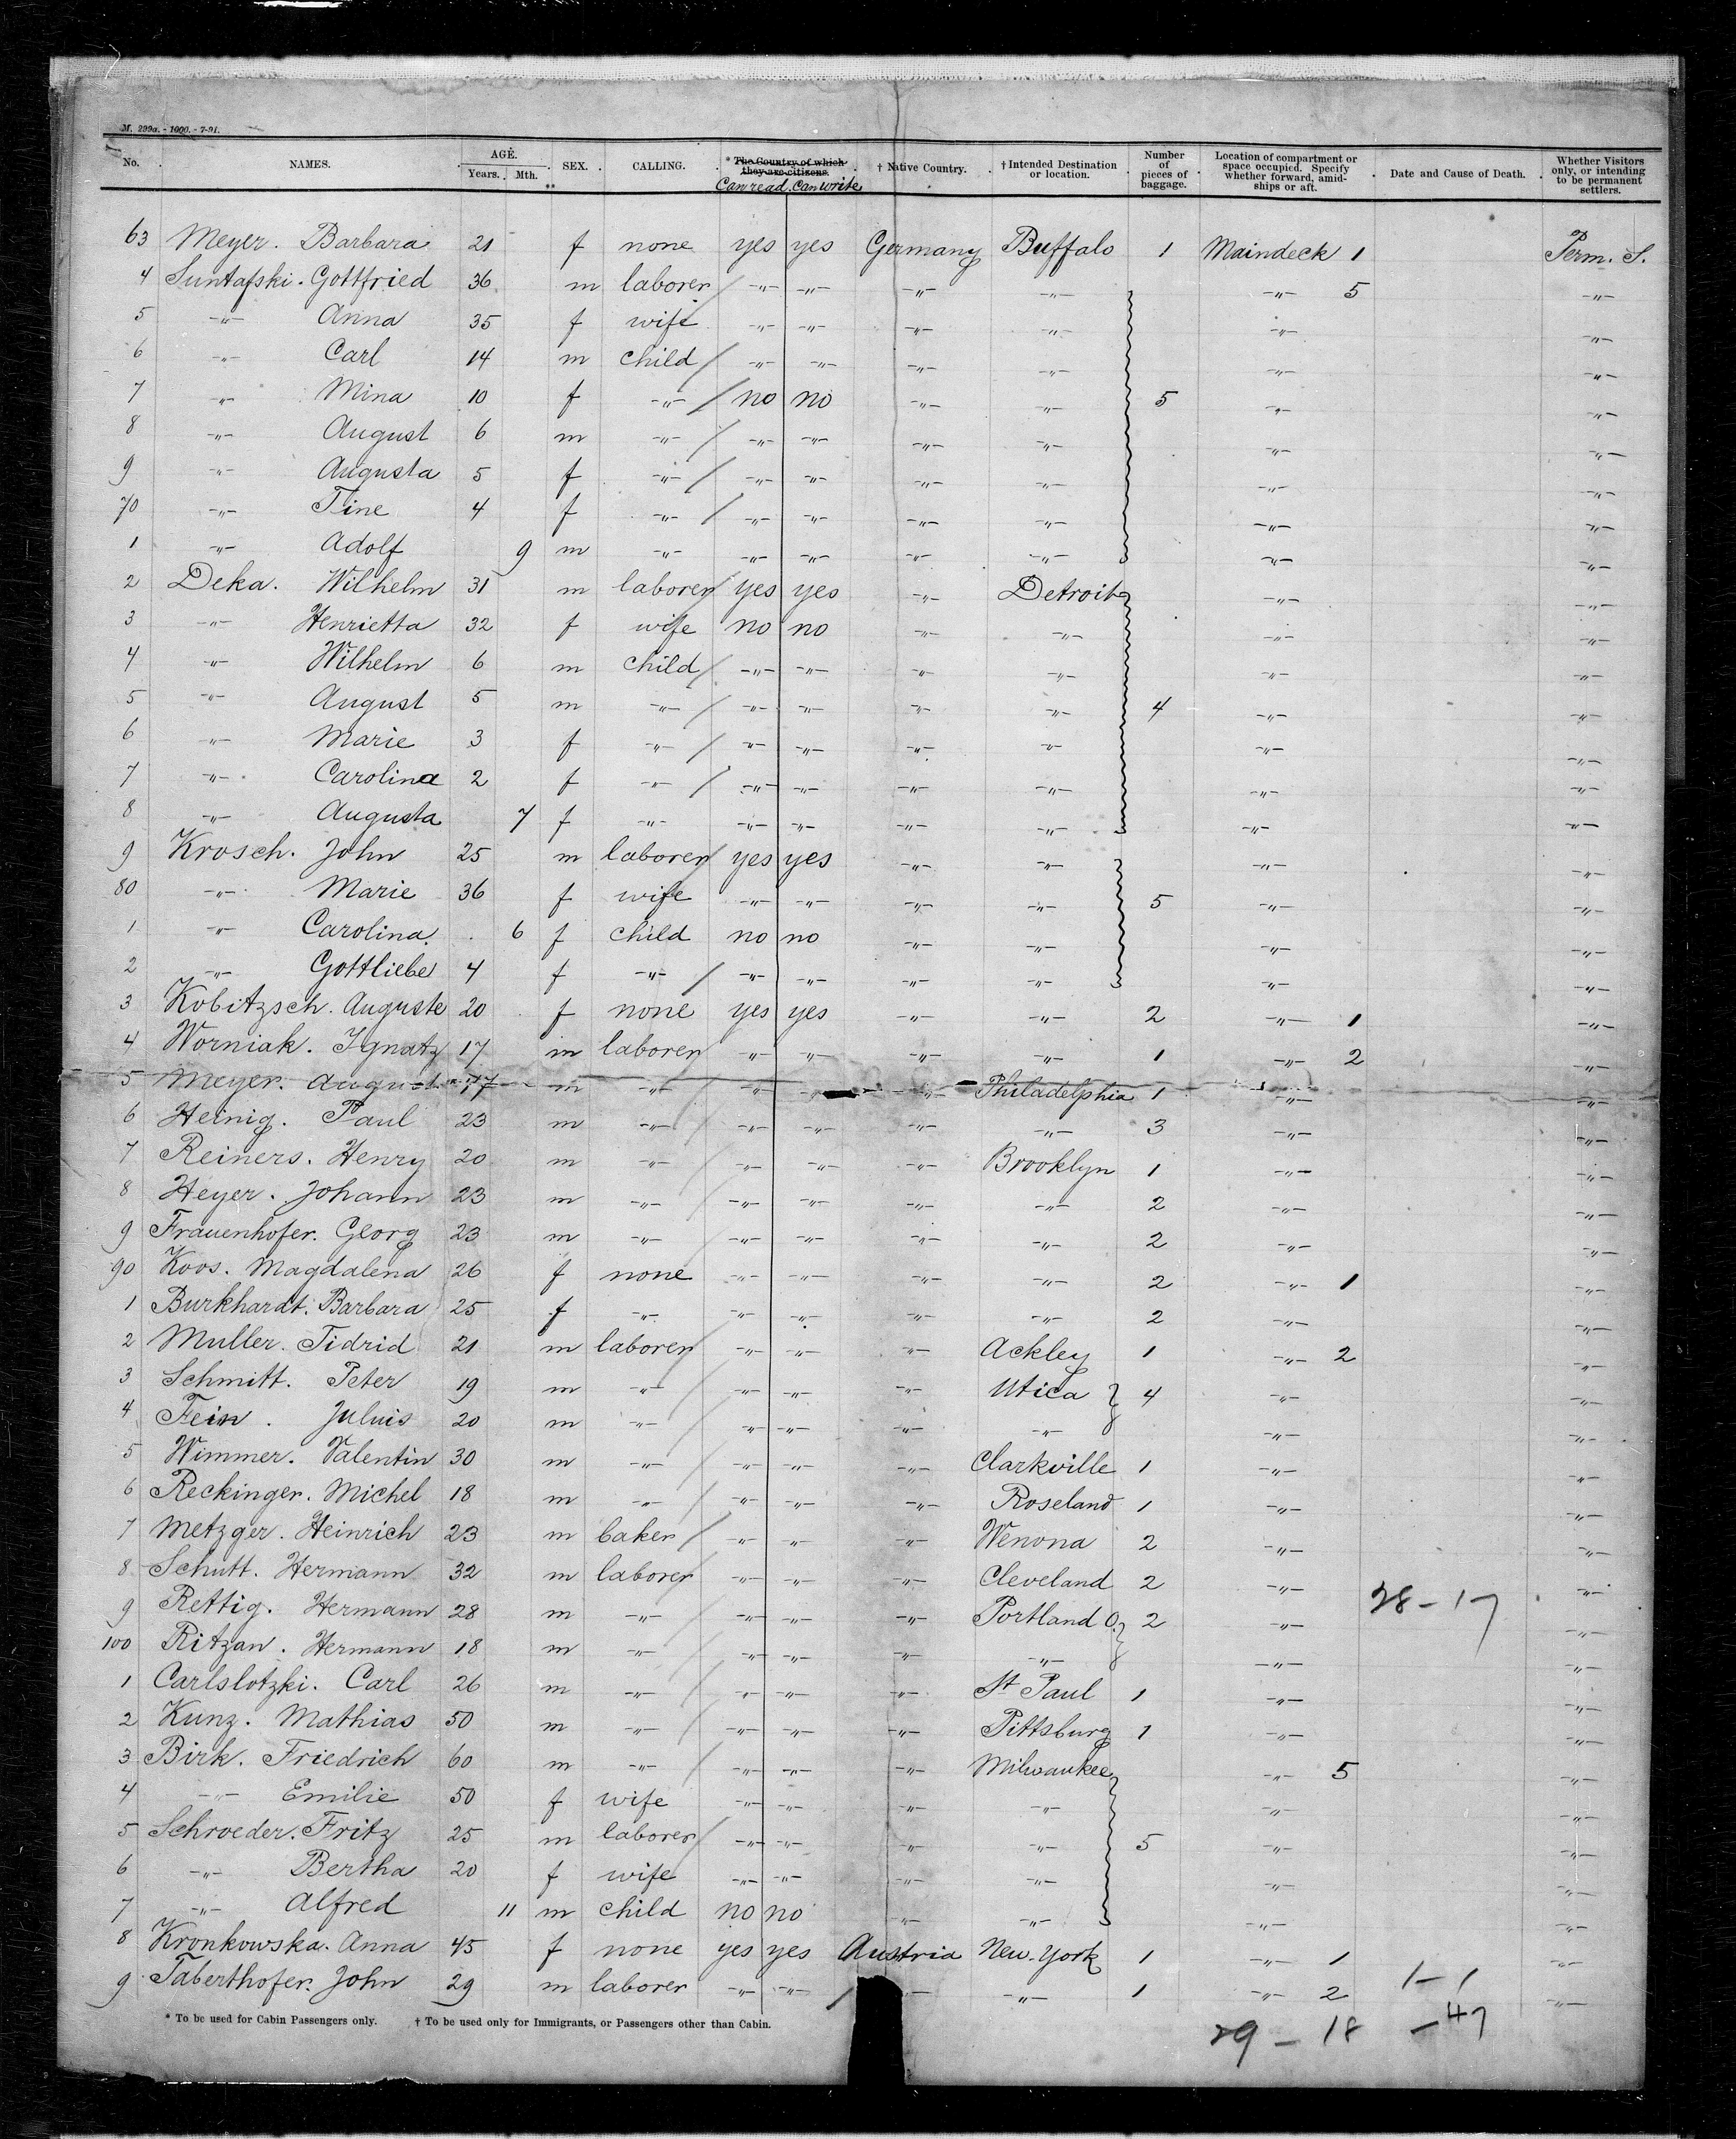 M. 299a. - 1000. - 7-91.
No. NAMES. AGE. Years. Mth. SEX. CALLING. * The Country of which they are citizens. Can read. Can write † Native Country. † Intended Destination or location. Number of pieces of baggage. Location of compartment or space occupied. Specify whether forward, amidships or aft. Date and Cause of Death. Whether Visitors only, or intending to be permanent settlers.
63 Meyer. Barbara 21 f none yes yes Germany Buffalo 1 Maindeck 1 Perm. S.
4 Suntafski. Gottfried 36 m laborer -"- -"- -"- -"- -"- 5 -"-
5 -"- Anna 35 f wife -"- -"- -"- -"- -"- -"-
6 -"- Carl 14 m child -"- -"- -"- -"- -"- -"-
7 -"- Mina 10 f -"- no no -"- -"- 5 -"- -"-
8 -"- August 6 m -"- -"- -"- -"- -"- -"- -"-
9 -"- Augusta 5 f -"- -"- -"- -"- -"- -"- -"-
70 -"- Tine 4 f -"- -"- -"- -"- -"- -"- -"-
1 -"- Adolf 9 m -"- -"- -"- -"- -"- -"- -"-
2 Deka. Wilhelm 31 m laborer yes yes -"- Detroit -"- -"-
3 -"- Henrietta 32 f wife no no -"- -"- -"- -"-
4 -"- Wilhelm 6 m child -"- -"- -"- -"- -"- -"-
5 -"- August 5 m -"- -"- -"- -"- -"- 4 -"- -"-
6 -"- Marie 3 f -"- -"- -"- -"- -"- -"- -"-
7 -"- Carolina 2 f -"- -"- -"- -"- -"- -"- -"-
8 -"- Augusta 7 f -"- -"- -"- -"- -"- -"- -"-
9 Krosch. John 25 m laborer yes yes -"- -"- -"- -"-
80 -"- Marie 36 f wife -"- -"- -"- -"- 5 -"- -"-
1 -"- Carolina. 6 f child no no -"- -"- -"- -"-
2 -"- Gottliebe 4 f -"- -"- -"- -"- -"- -"- -"-
3 Kobitzsch. Auguste 20 f none yes yes -"- -"- 2 -"- 1 -"-
4 Worniak. Ignatz 17 m laborer -"- -"- -"- -"- 1 -"- 2 -"-
5 Meyer. August 17 m -"- -"- -"- -"- Philadelphia 1 -"- -"-
6 Heinig. Paul 23 m -"- -"- -"- -"- -"- 3 -"- -"-
7 Reiners. Henry 20 m -"- -"- -"- -"- Brooklyn 1 -"- -"-
8 Heyer. Johann 23 m -"- -"- -"- -"- -"- 2 -"- -"-
9 Frauenhofer. Georg 23 m -"- -"- -"- -"- -"- 2 -"- -"-
90 Koos. Magdalena 26 f none -"- -"- -"- -"- 2 -"- 1 -"-
1 Burkhardt. Barbara 25 f -"- -"- -"- -"- -"- 2 -"- -"-
2 Muller. Tidrid 21 m laborer -"- -"- -"- Ackley 1 -"- 2 -"-
3 Schmitt. Peter 19 m -"- -"- -"- -"- Utica 4 -"- -"-
4 Fein. Juluis 20 m -"- -"- -"- -"- -"- -"- -"-
5 Wimmer. Valentin 30 m -"- -"- -"- -"- Clarkville 1 -"- -"-
6 Reckinger. Michel 18 m -"- -"- -"- -"- Roseland 1 -"- -"-
7 Metzger. Heinrich 23 m baker -"- -"- -"- Wenona 2 -"- -"-
8 Schutt. Hermann 32 m laborer -"- -"- -"- Cleveland 2 -"- -"-
9 Rettig. Hermann 28 m -"- -"- -"- -"- Portland O. 2 -"- 28-17 -"-
100 Ritzan. Hermann 18 m -"- -"- -"- -"- -"- -"- -"-
1 Carlslotzki. Carl 26 m -"- -"- -"- -"- St Paul 1 -"- -"-
2 Kunz. Mathias 50 m -"- -"- -"- -"- Pittsburg 1 -"- -"-
3 Birk. Friedrich 60 m -"- -"- -"- -"- Milwaukee -"- 5 -"-
4 -"- Emilie 50 f wife -"- -"- -"- -"- -"- -"-
5 Schroeder. Fritz 25 m laborer -"- -"- -"- -"- 5 -"- -"-
6 -"- Bertha 20 f wife -"- -"- -"- -"- -"- -"-
7 -"- Alfred 11 m child no no -"- -"- -"- -"-
8 Kronkowska. Anna 45 f none yes yes Austria New-York 1 -"- 1 -"-
9 Taberthofer. John 29 m laborer -"- -"- -"- -"- 1 -"- 2 1-1 -"-
* To be used for Cabin Passengers only. † To be used only for Immigrants, or Passengers other than Cabin.
29 - 18 - 47